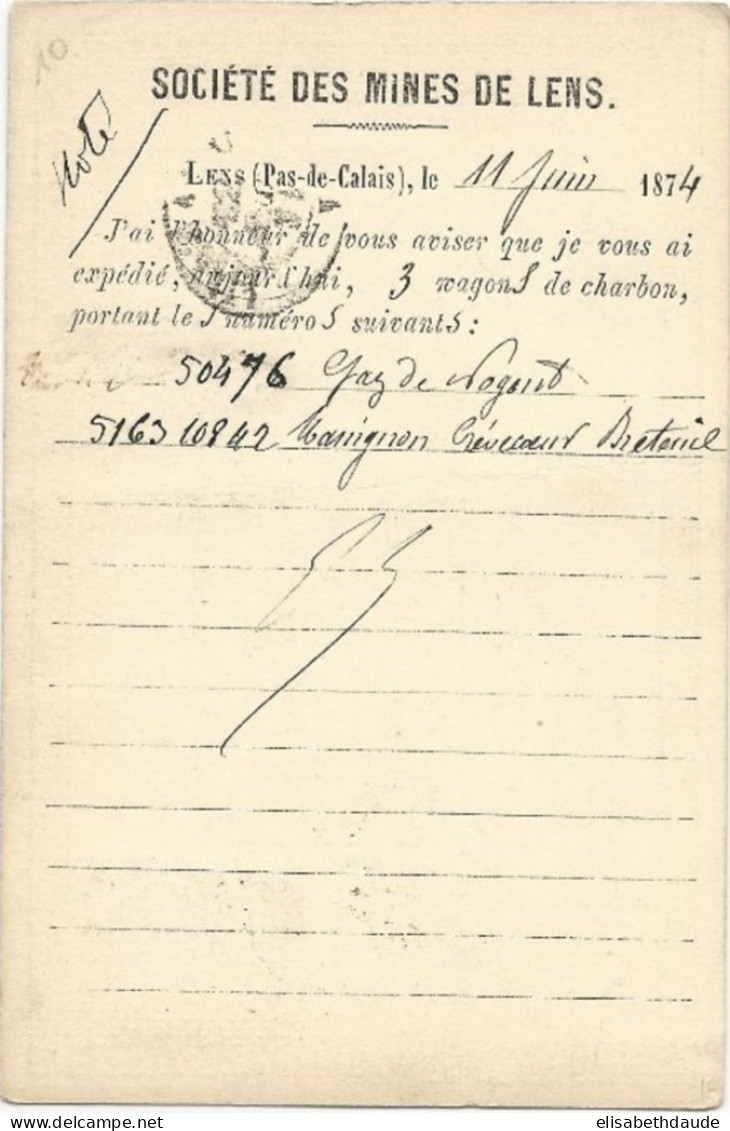 10
SOCIÉTÉ DES MINES DE LENS.
Noté
LENS (Pas-de-Calais), le 11 Juin 1874
J'ai l'honneur de vous aviser que je vous ai
expédié, aujourd'hui, 3 wagons de charbon,
portant les numéros suivants :
50476 Gaz de Nogent
5163 10842 Crévecoeur Breteuil
elisabethdaude